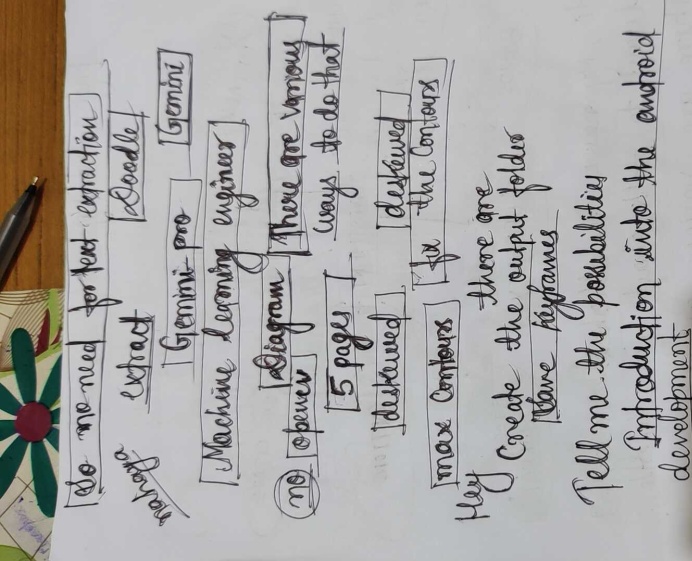 So no need for text extraction
extract Doodle
Gemini pro Gemini
Machine learning engineer
Diagram There are various
no opener ways to do that
5 pages
deskewed deskewed
fix the Contours
max Contours
Hey there are
Create the output folder
Save keyframes
Tell me the possibilities
Introduction into the android
development